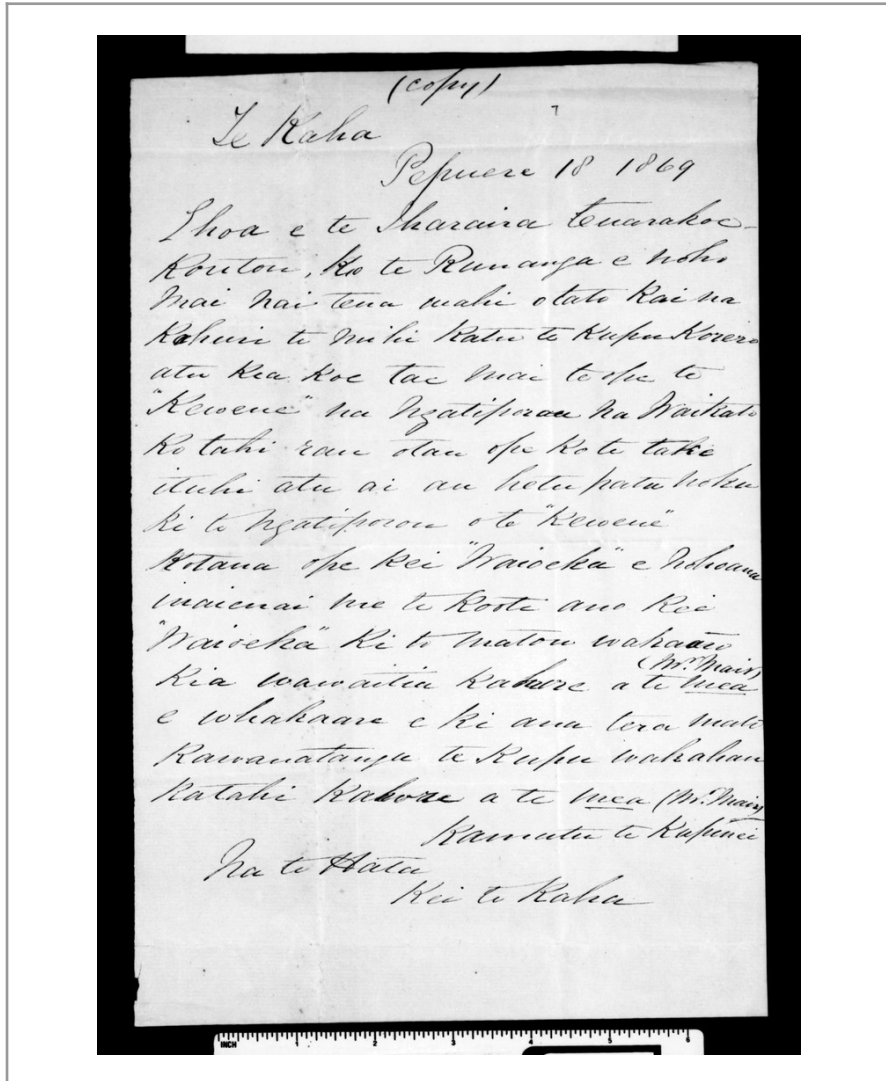 (copy)
Te Kaha
Pepuere 18 1869
Ehoa e te Iharaira tenarakoe
Koutou, Ko te Runanga e noho
mai nai tena wahi otato Kai na
Kahuri te mihi Katu te Kupu Korero
atu kia koe tae mai te ope te
"Kewene" na Ngatiporou na Waikato
Ko tahi rau otau ope Ko te take
ituhi atu ai au hetu patu noku
ki te Ngatiporou o te "Kewene"
Kotana ope kei "Waioeka" e nohoana
inaienai me te Kooti ano Kei
"Waioeka" Ki to matou wakaaro
(Mr. Mair)
Kia wawaitia Kahore a te mea
e whakaare e ki ana tera mate
Kawanatanga te Kupu wakahau
Katahi Kahore a te mea (Mr. Mair)
Kamutu te Kupunei
Na te Hata
Kei te Kaha
INCH 1 2 3 4 5 6